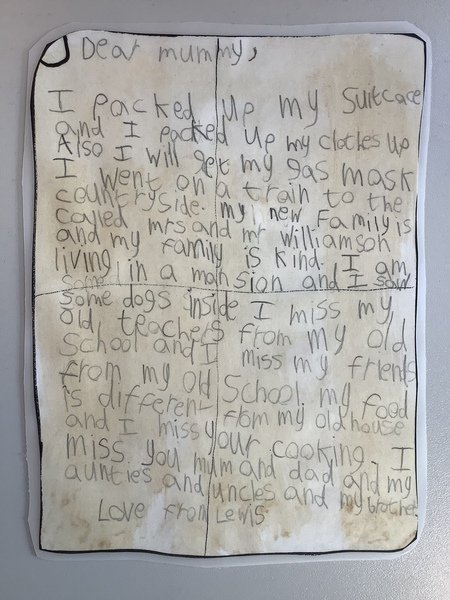 Dear mummy,
I packed up my Suitcase
and I packed up my clothes up
Also I will get my gas mask
I went on a train to the
countryside. my new family is
called mrs and mr williamson
and my family is kind. I am
living in a mansion and I saw
some dogs inside I miss my
old teachers from my old
School and I miss my friends
from my old School. my food
is different from my old house
and I miss your cooking. I
miss you mum and dad and my
aunties and uncles and my brother
Love from Lewis